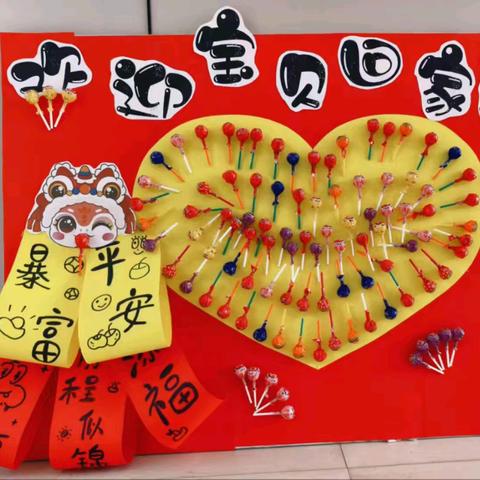 欢迎宝贝回家
暴富
平安
程似锦
福